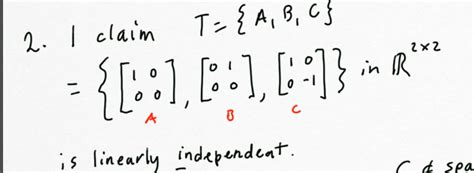 2. I claim T = { A, B, C }
= { [ 1 0 0 0 ], [ 0 1 0 0 ], [ 1 0 0 -1 ] } in ℝ^{2×2}
A B C
is linearly independent.
C ⊄ spa